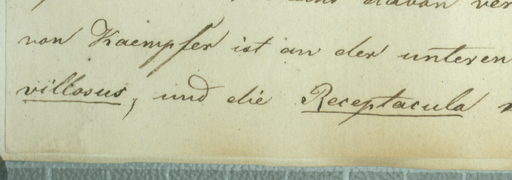 davon ver
von Kaempfer ist an der unteren
villosus, und die Receptacula